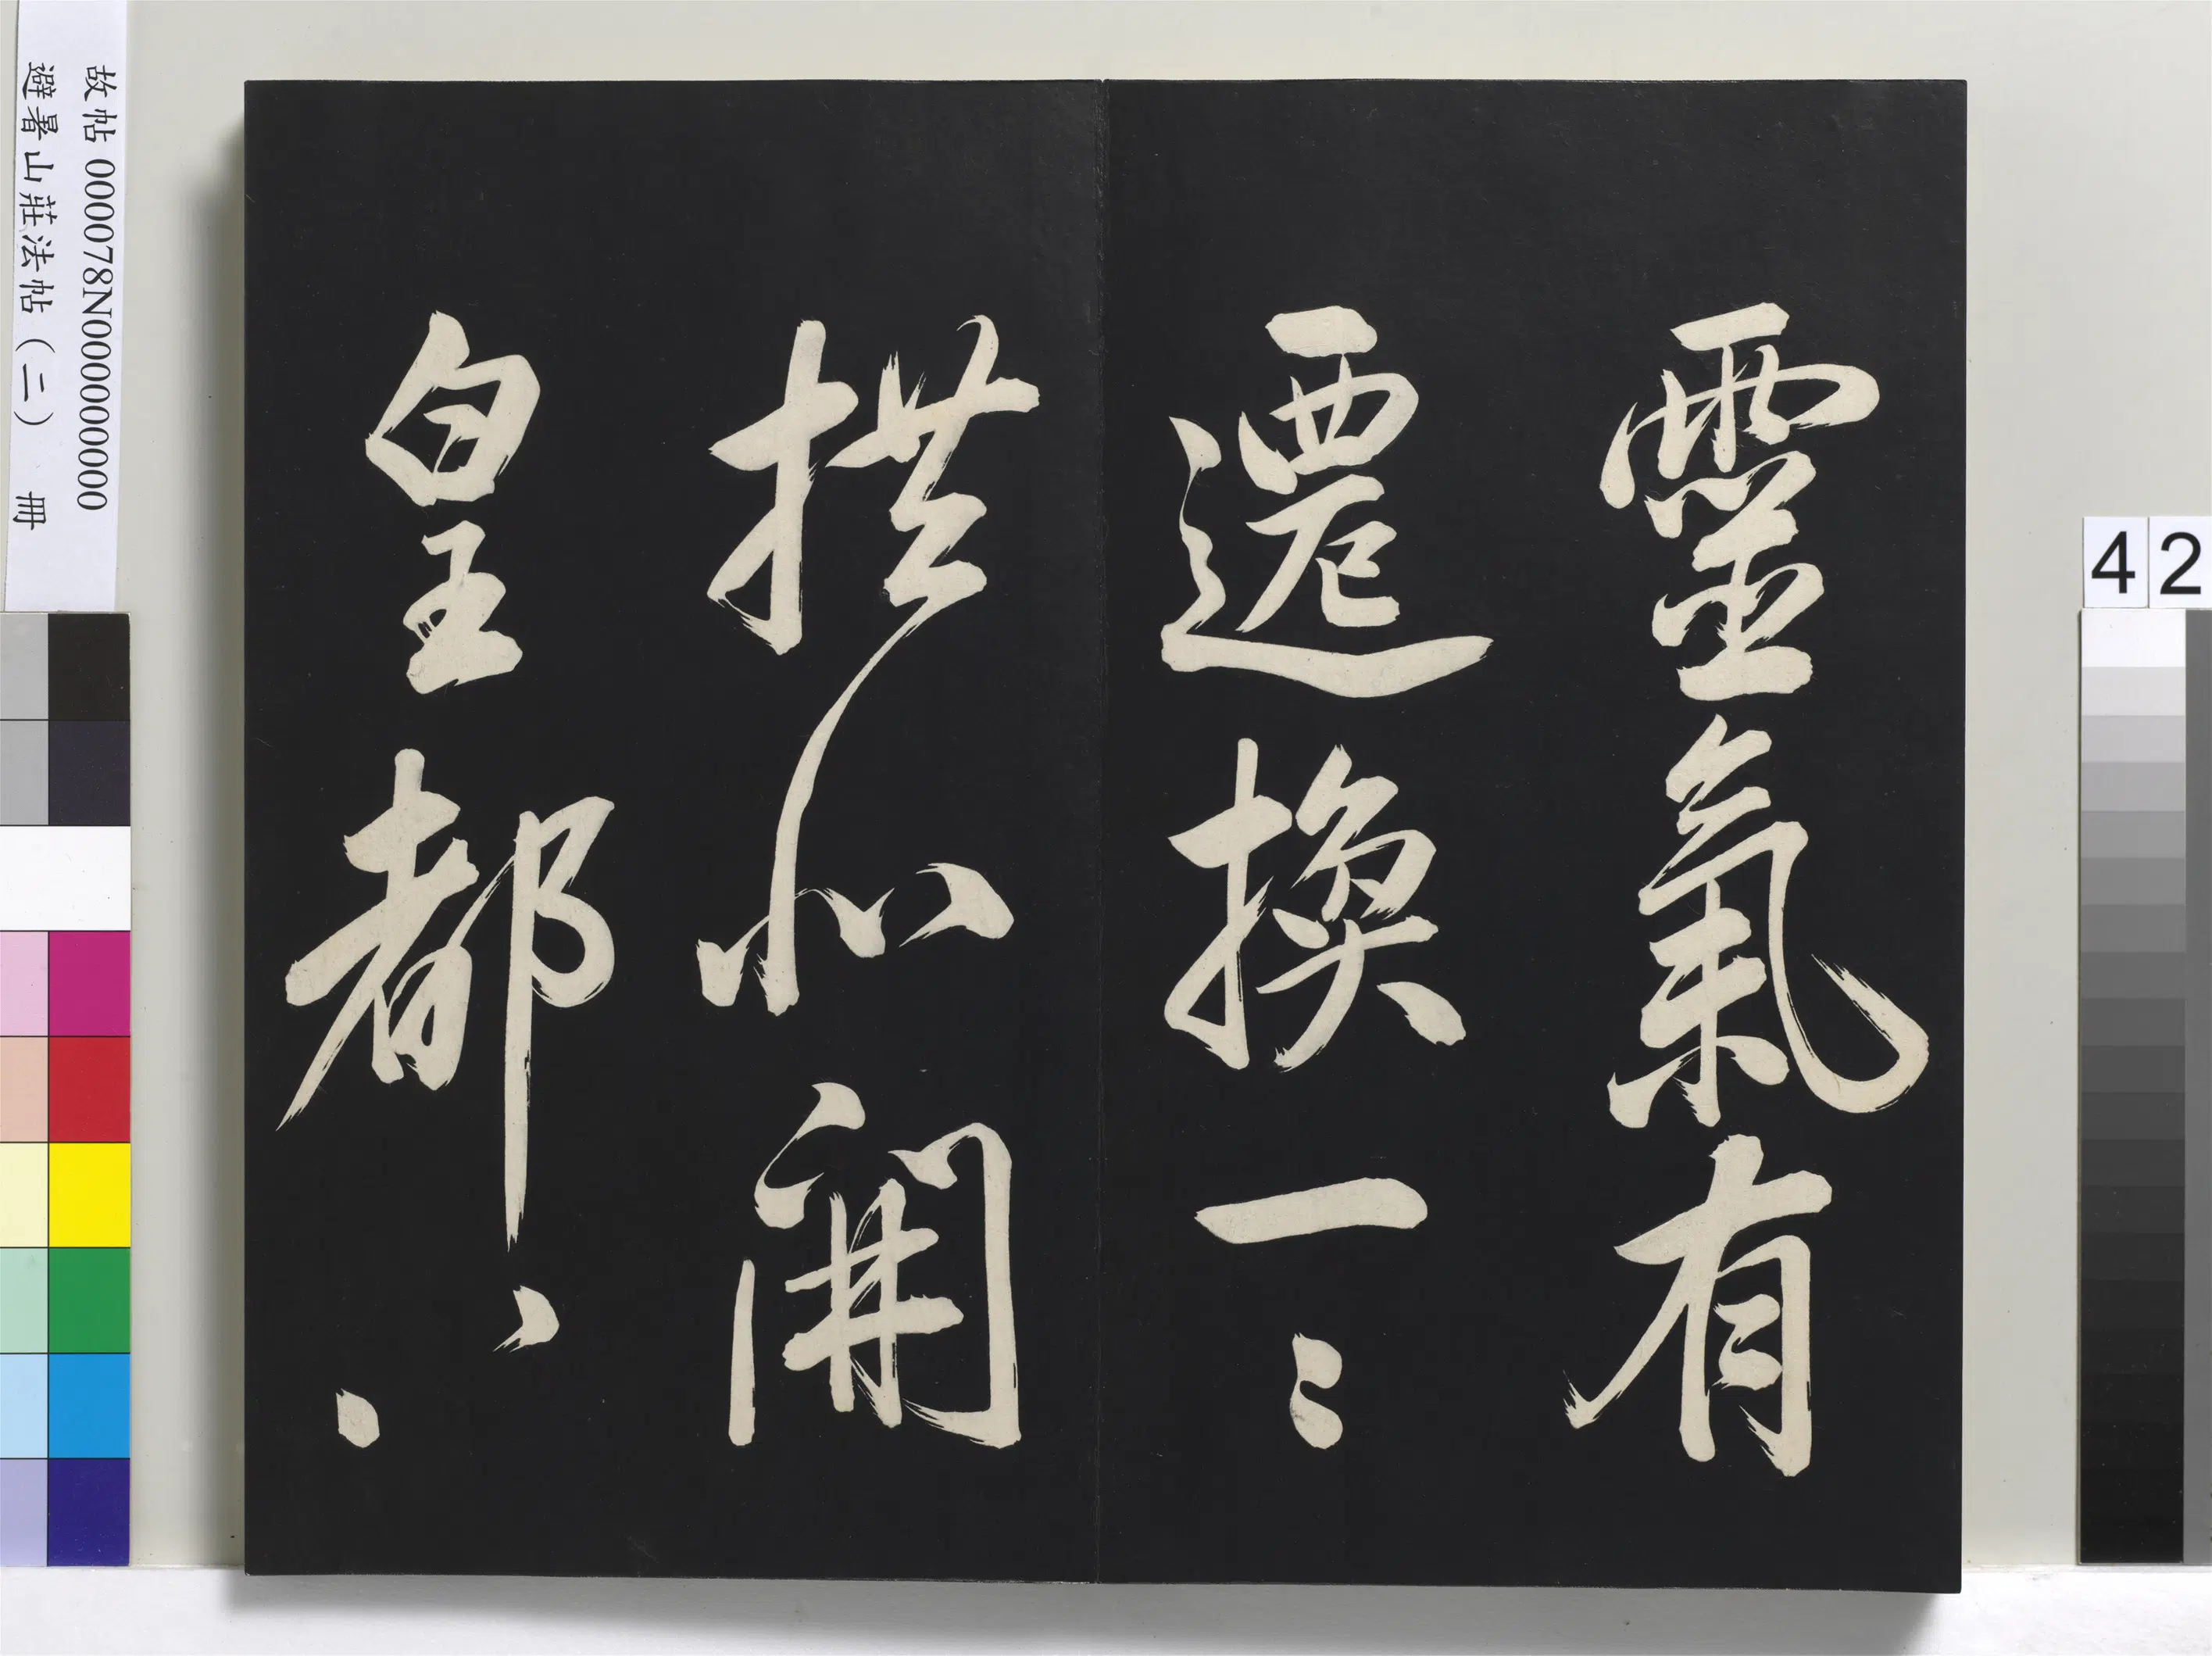 靈氣有
遷換一〻
拱北開
皇都〻〻
故帖 000078N000000000
避暑山莊法帖(二) 冊
42